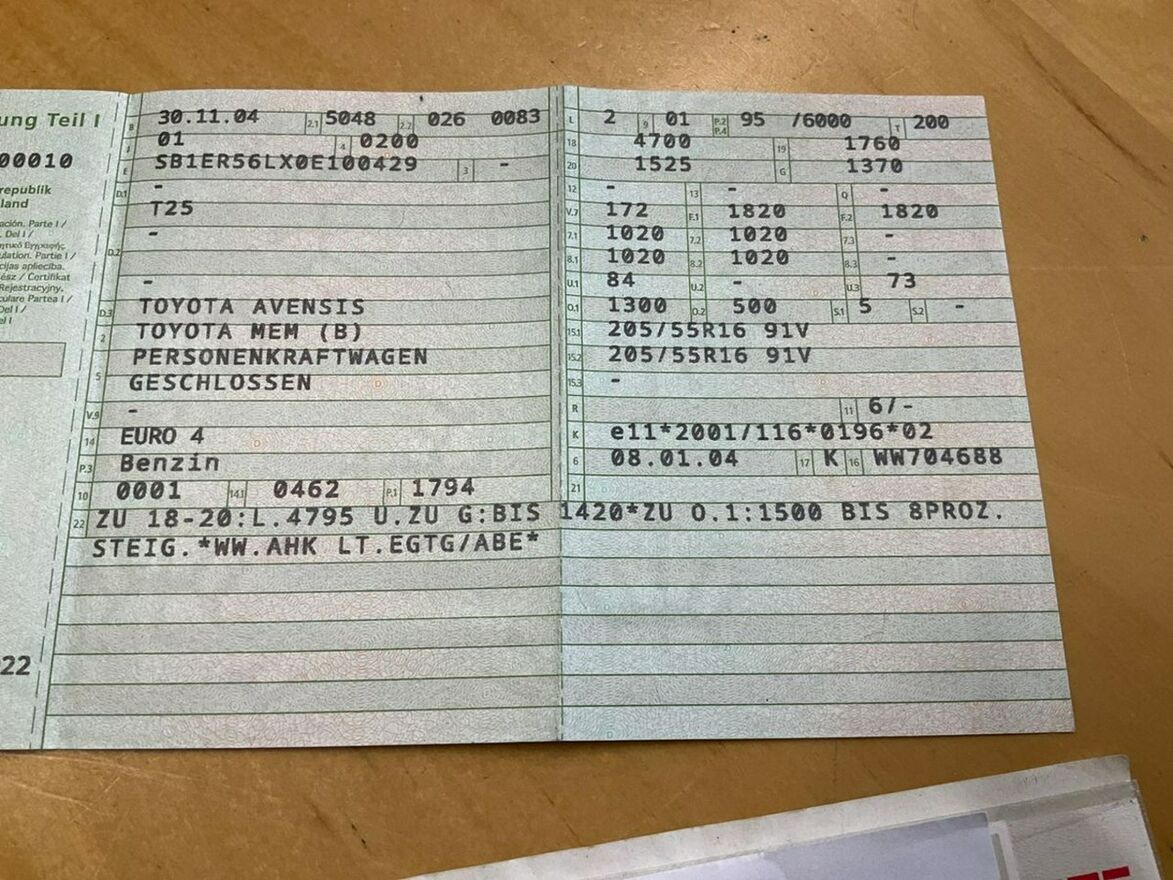 ung Teil I
00010
republik
land
ación. Parte I /
. Del I /
ulation. Partie I /
cijas apliecība.
ész / Certifikat
Rejestracyjny.
culare Partea I /
Del I /
el I
22
B 30.11.04 2.1 5048 2.2 026 0083
J 01 4 0200
E SB1ER56LX0E100429 3 -
D.1 -
T25
D.2 -
-
D.3 TOYOTA AVENSIS
2 TOYOTA MEM (B)
5 PERSONENKRAFTWAGEN
GESCHLOSSEN
V.9 -
14 EURO 4
P.3 Benzin
10 0001 14.1 0462 P.1 1794
L 2 9 01 P.2 P.4 95 /6000 T 200
18 4700 19 1760
20 1525 G 1370
12 - 13 - Q -
V.7 172 F.1 1820 F.2 1820
7.1 1020 7.2 1020 7.3 -
8.1 1020 8.2 1020 8.3 -
U.1 84 U.2 - U.3 73
O.1 1300 O.2 500 S.1 5 S.2 -
15.1 205/55R16 91V
15.2 205/55R16 91V
15.3 -
R 11 6/-
K e11*2001/116*0196*02
6 08.01.04 17 K 16 WW704688
21
22 ZU 18-20:L.4795 U.ZU G:BIS 1420*ZU O.1:1500 BIS 8PROZ.
STEIG.*WW.AHK LT.EGTG/ABE*